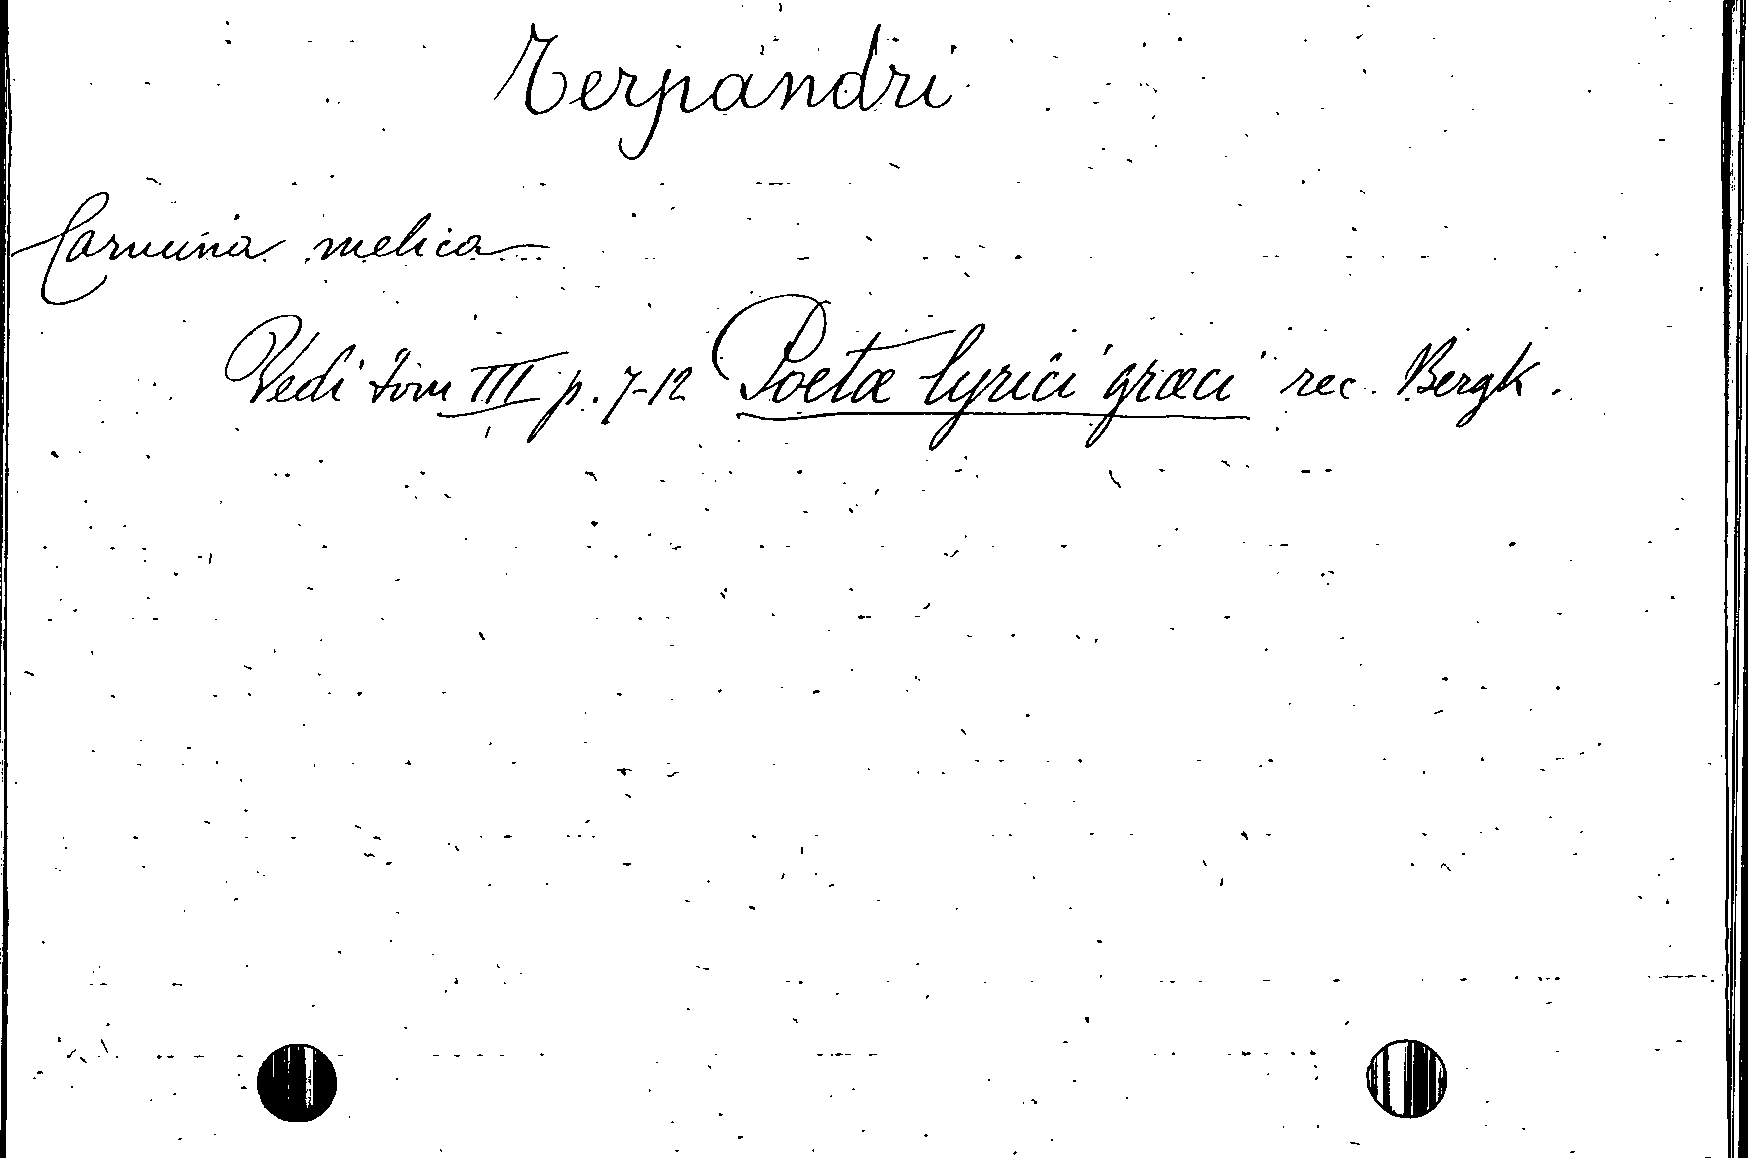 Terpandri
Carmina melica
Vedi tom III p. 7-12 Poetæ lyrici græci rec. Bergk.